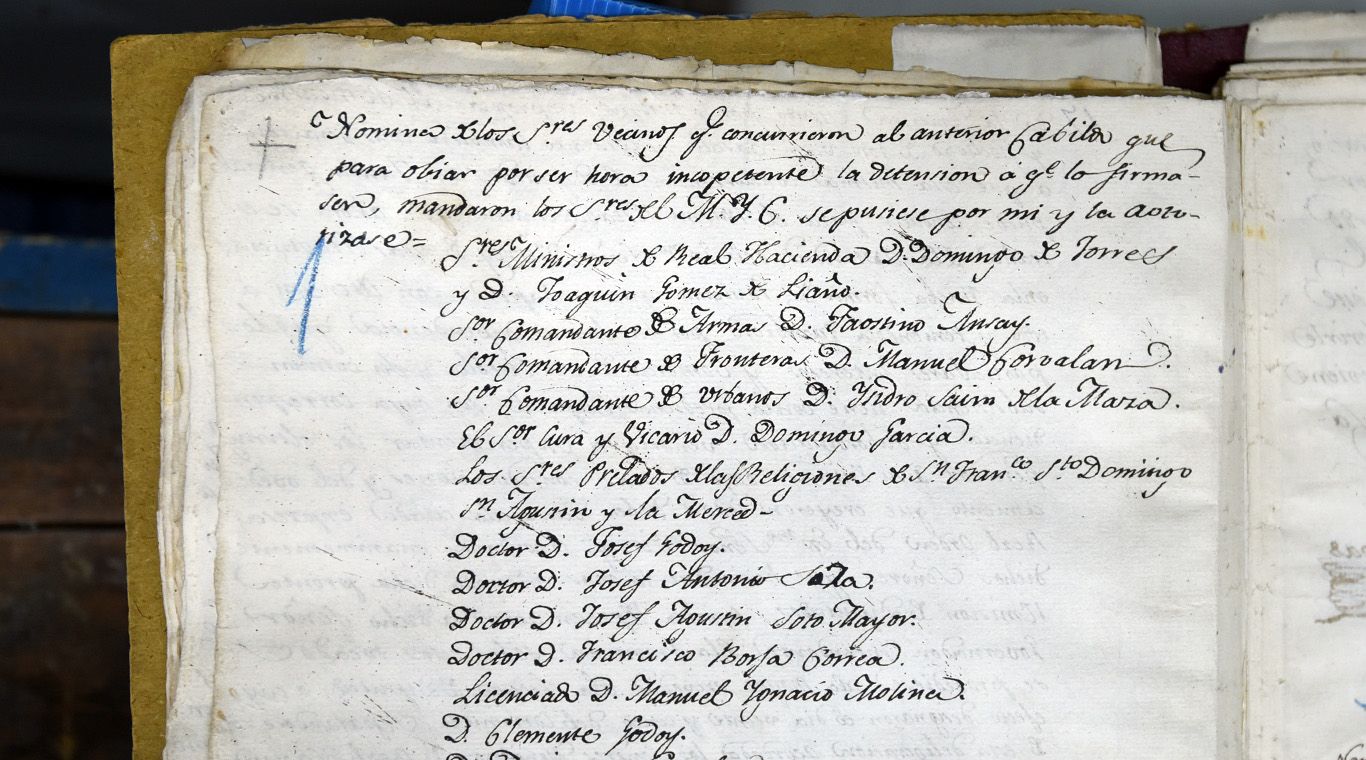 Nomina de los Sres Vecinos q.e concurrieron al anterior Cabildo que
para obiar por ser hora incopetente la detension á q.e lo firma-
sen, mandaron los Sres del M. Y. C. se pusiese por mi y la auto-
rizase=
Sres Ministros de Real Hacienda D. Domingo de Torres
y D. Joaquin Gomez de Liaño.
Sor Comandante de Armas D. Faostino Ansay.
Sor Comandante de Fronteras D. Manuel Corvalan.
Sor Comandante de Urbanos D. Ysidro Sainz de la Maza.
El Sor Cura y Vicario D. Domingo Garcia.
Los Sres Prelados de las Religiones de Sn Franco Sto Domingo
Sn Agustin y la Merced-
Doctor D. Josef Godoy.
Doctor D. Josef Antonio Saza.
Doctor D. Josef Agustin Soto Mayor.
Doctor D. Francisco Borja Correa.
Licenciado D. Manuel Ygnacio Molina.
D. Clemente Godoy.